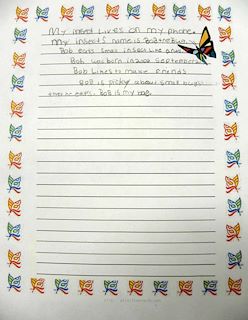 My insect lives on my phone.
My insect's name is Bob the Bug.
Bob eats small insects like ants.
Bob was born in 2002 September
Bob likes to make friends
Bob is picky about small bugs
he eats. Bob is my